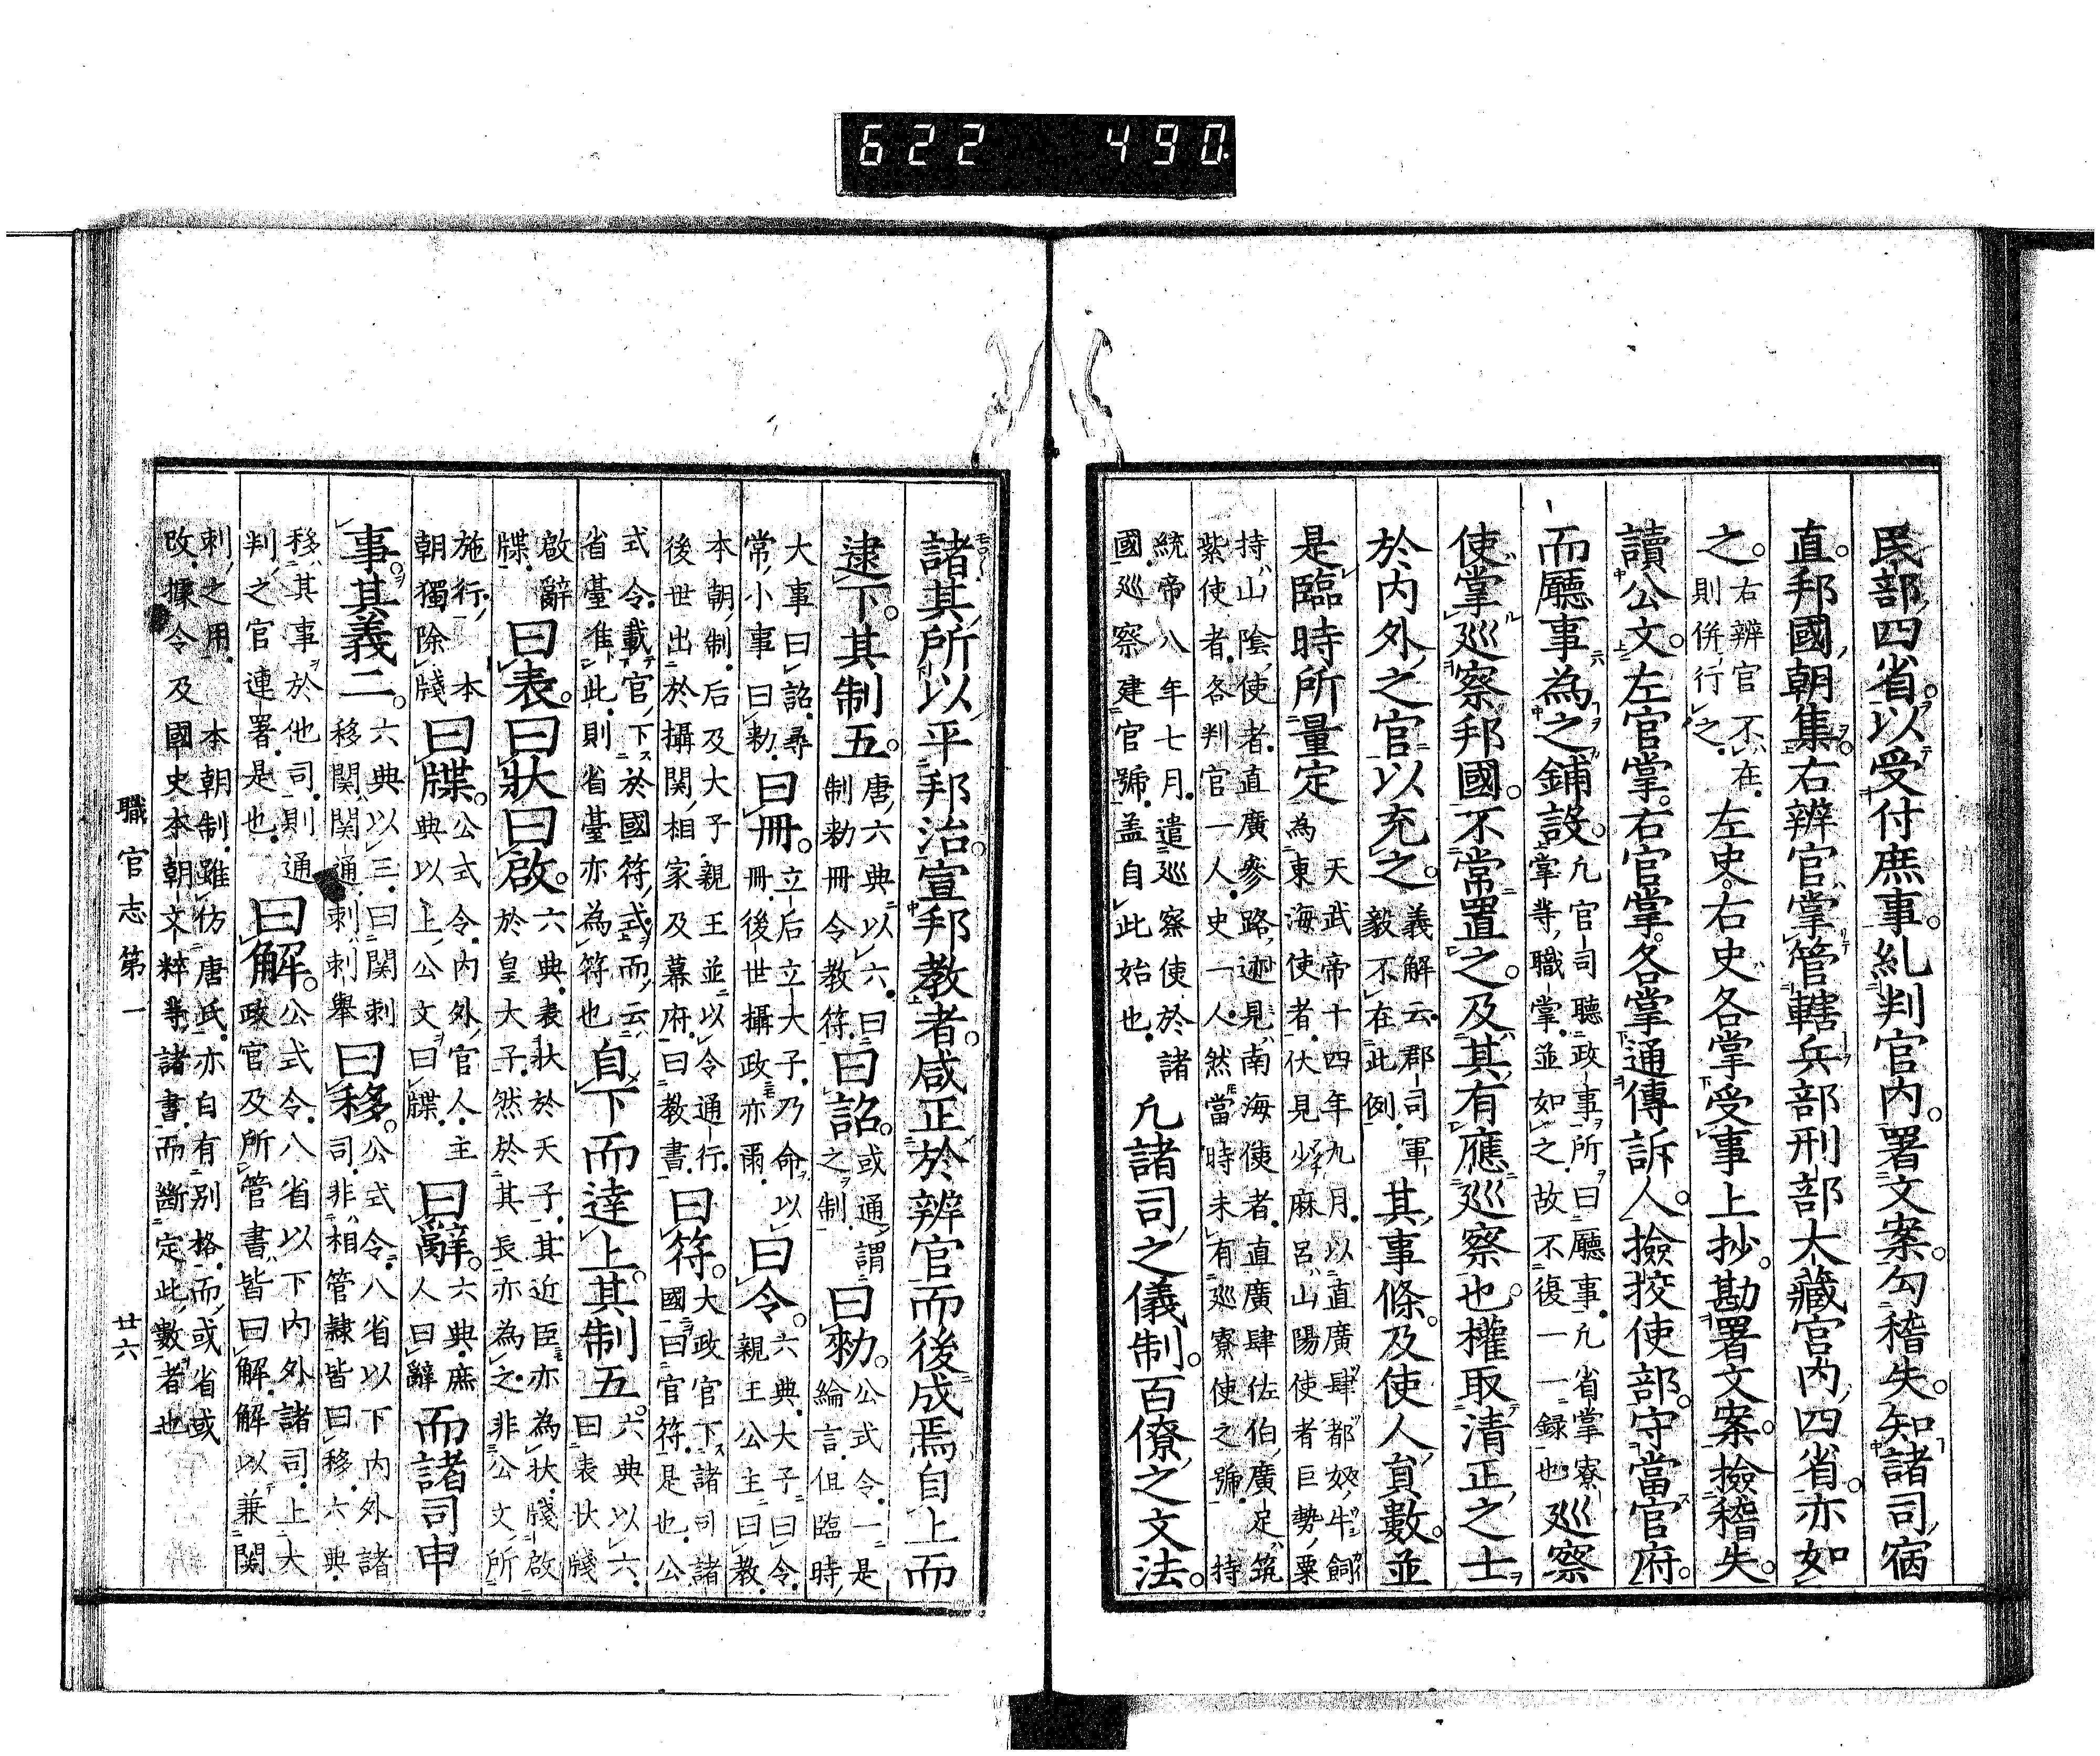 622 490
民部四省。以受付庶事。糺判官内。署文案。勾稽失。知諸司宿
直。邦國朝集。右辨官掌管轄兵部刑部大藏宮内四省。亦如
之。右辨官不在。
則併行之。
左史。右史各掌受事上抄。勘署文案。撿稽失。
讀公文。左官掌。右官掌。各掌通傳訴人。撿挍使部。守當官府。
而廳事為之鋪設。
凡官司聽政事所曰廳事。凡省掌寮
掌等職掌。並如之。故不復一一錄也
巡察
使掌巡察邦國。不常置之。及其有應巡察也。權取清正之士
於内外之官以充之。
義解云。郡司軍
毅不在此例。
其事條。及使人員數。並
是臨時所量定
天武帝十四年九月。以直廣肆都奴牛飼
為東海使者。伏見少麻呂山陽使者巨勢粟
持山陰使者。直廣參路迹見南海使者。直廣肆佐伯廣足筑
紫使者。各判官一人。史一人。然當時未有巡察使之號。持
統帝八年七月。遣巡察使於諸
國。巡察建官號。蓋自此始也。
凡諸司之儀制。百僚之文法。
諸其所以平邦治。宣邦教者。咸正於辨官而後成焉自上而
逮下。其制五。
唐六典以六。曰
制勅冊令教符。
曰詔。
或通謂
之制。
曰勅。
公式令。一是
綸言。但臨時
大事曰詔。尋
常小事曰勅。
曰冊。
立后立大子。乃命以
冊。後世攝政亦爾。
曰令。
六典。大子曰令。
親王公主曰教。
本朝制。后及大子親王並以令通行。
後世出於攝関相家及幕府。曰教書。
曰符。
大政官下諸司諸
國曰官符。是也。公
式令。載官下於國符式而云
省臺准此。則省臺亦為符也
自下而達上。其制五。
六典以六。
曰表状牋
啟辭
牒。
曰表。曰狀曰啟。
六典。表狀於天子。其近臣亦為狀。牋啟
於皇大子。然於其長亦為之。非公文所
施行。本
朝獨除牋
曰牒。
公式令。内外官人主
典以上公文曰牒。
曰辭。
六典。庶
人曰辭
而諸司申
事。其義二。
六典以三。曰関刺
移関関通刺刺舉
曰移。
公式令。八省以下内外諸
司。非相管隷皆曰移。六典。
移其事於他司。則通
判之官連署。是也。
曰解。
公式令。八省以下内外諸司。上大
政官及所管書皆曰解。解以兼関
刺之用。本朝制。雖仿唐氏。亦自有別格。而或省或
改。據令及國史本朝文粹等諸書。而斷定此數者也
職官志第一
廿六